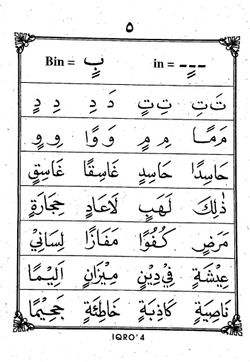 ٥
Bin = بٍ in = ـٍـ
تَ تِ تِ تٍ دَ دِ دِ دٍ
مَ مًا مِ مٍ وَ وًا وِ وٍ
حَاسِدًا حَاسِدٍ غَاسِقًا غَاسِقٍ
ذٰلِكَ لَهَبٍ لَاعَادٍ حِجَارَةٍ
مَرَضٍ كُفُوًا مَفَازًا لِسَانِيْ
عِيْشَةٍ فِيْ دِيْنِ مِيْزَانٍ اَلِيْمًا
نَاصِيَةٍ كَاذِبَةٍ خَاطِئَةٍ جَحِيْمًا
IQRO' 4